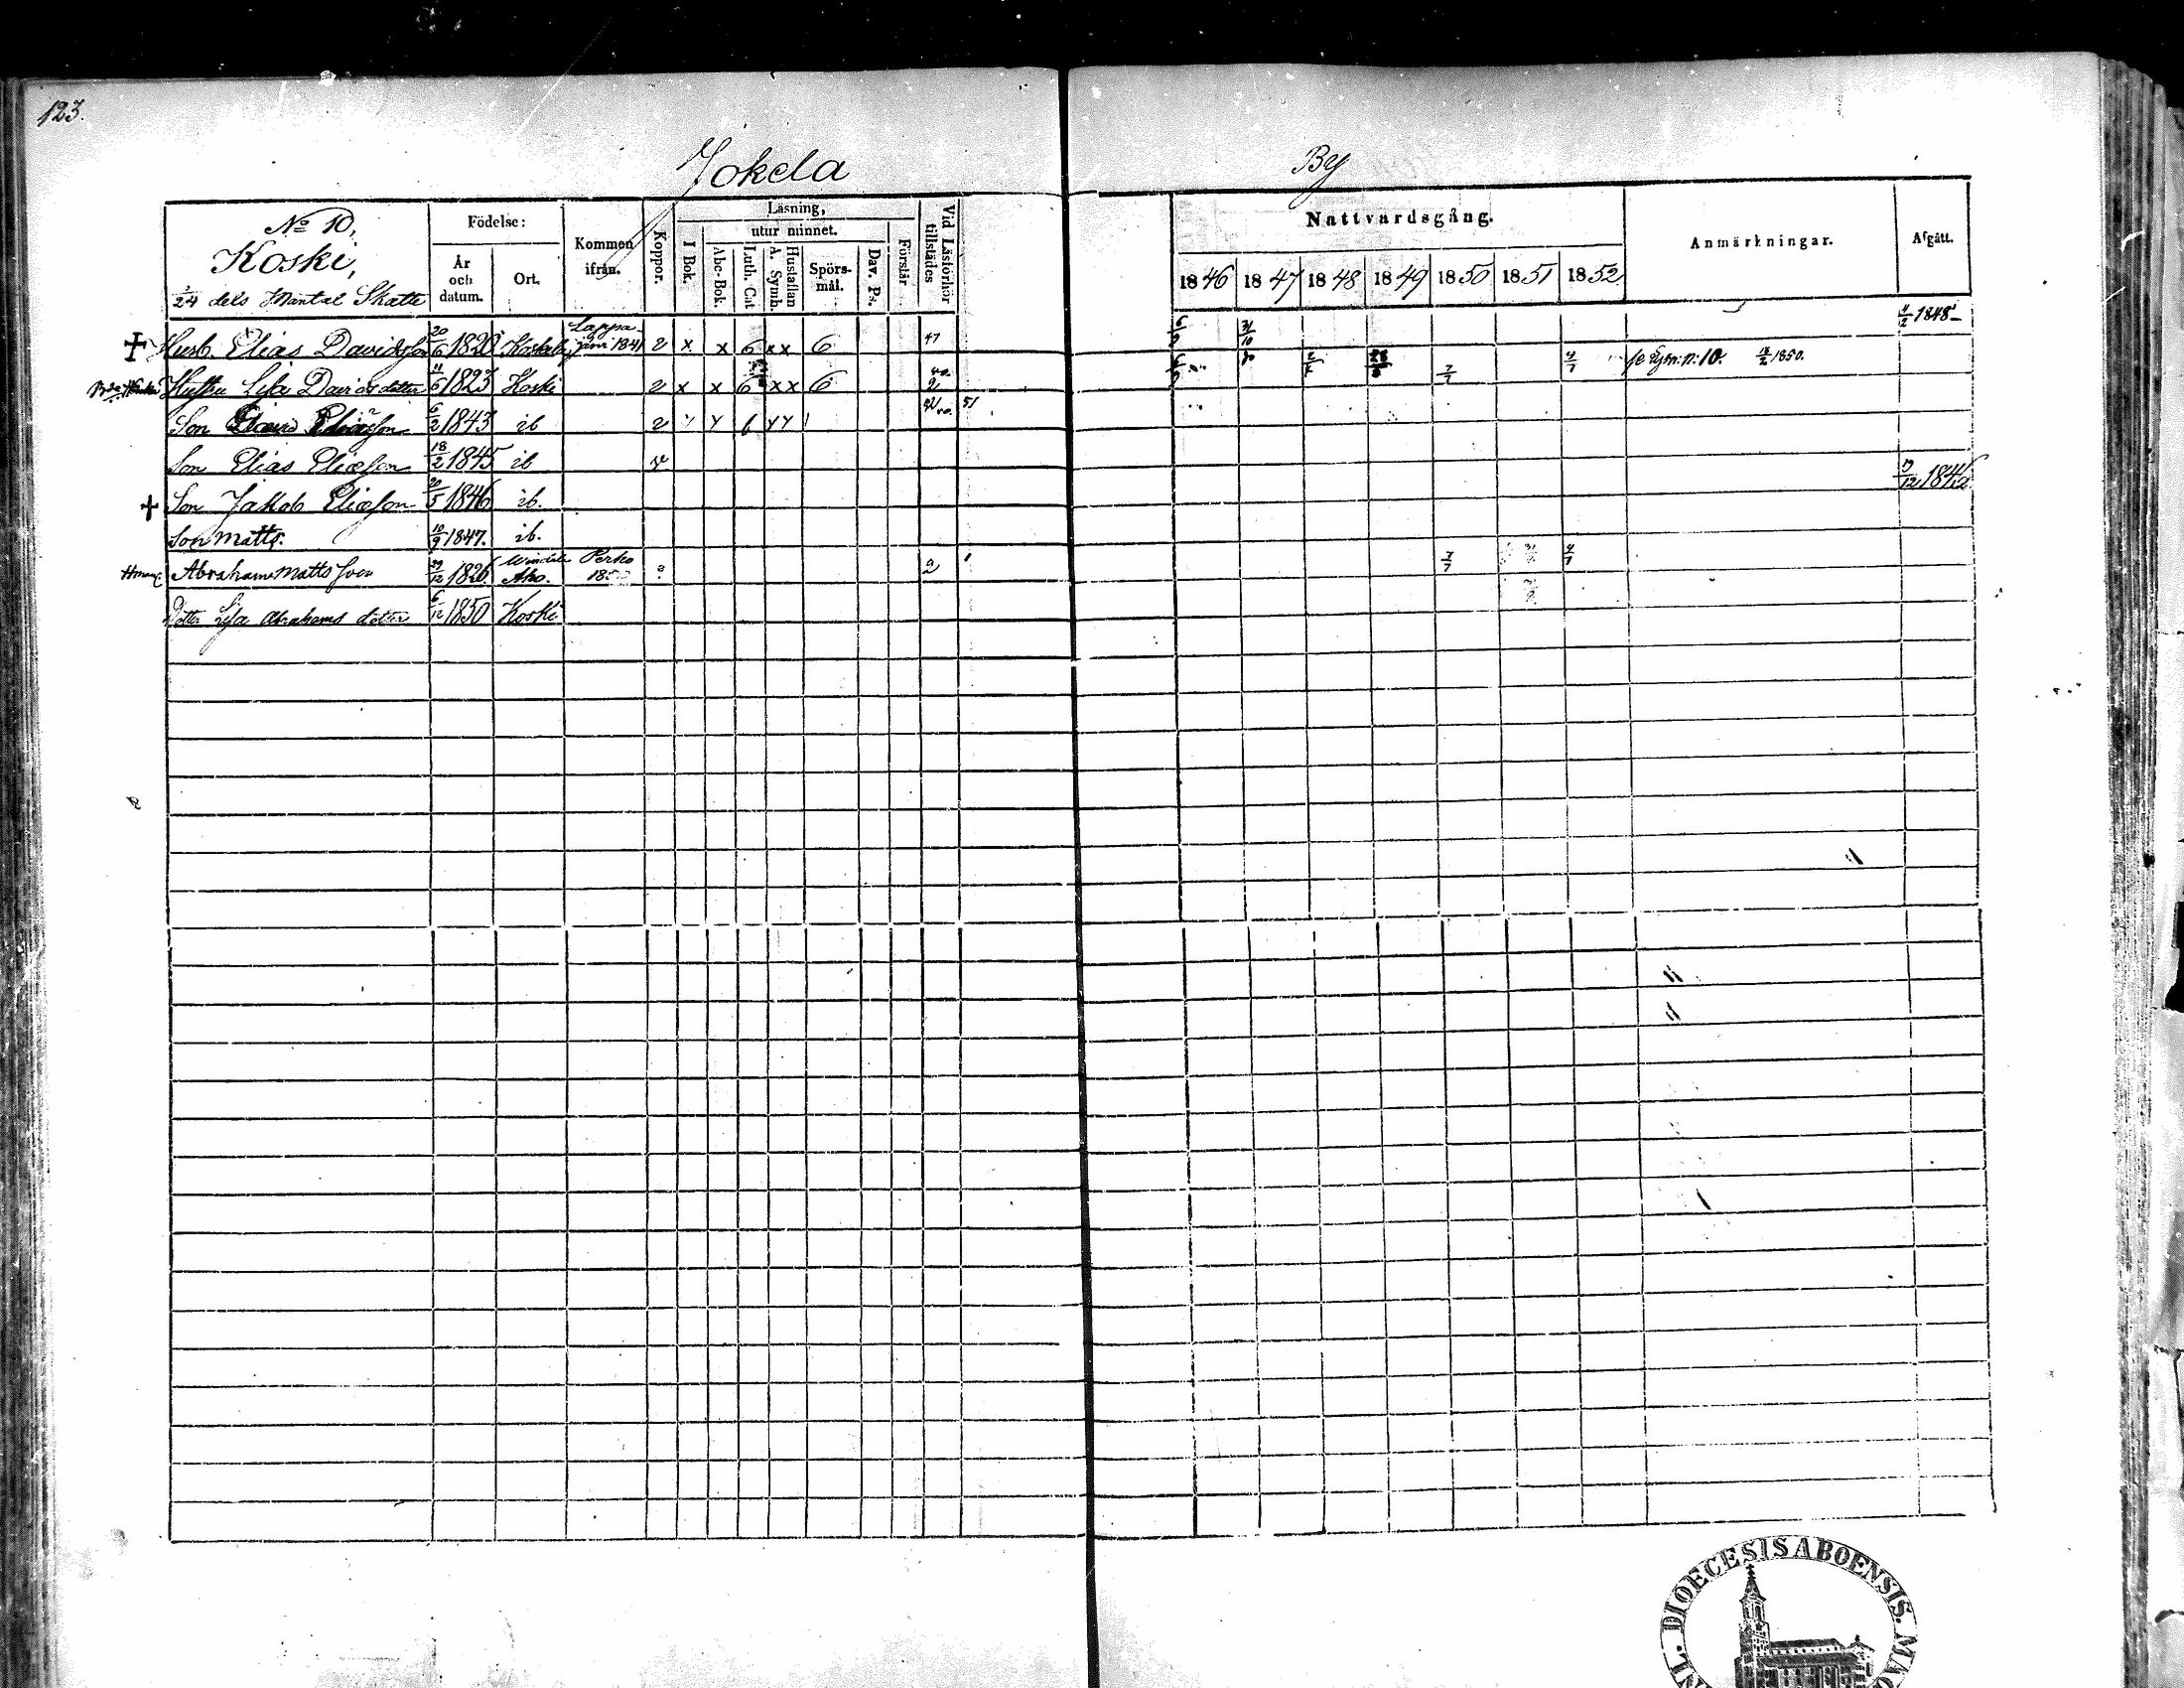 123.
Jokela By
No 10,
Koski,
1/24 dels Mantal Skatte
Födelse:
År och datum.
Ort.
Kommen ifrån.
Koppor.
Läsning,
I Bok.
utur minnet.
Abc-Bok.
Luth. Cat
Hustaflan A. Symb.
Spörs-mål.
Dav. Ps.
Förstår
Vid Läsförhör tillstädes
Nattvardsgång.
1846 1847 1848 1849 1850 1851 1852
Anmärkningar.
Afgått.
Husb. Elias Davidsson 20/6 1820 Lappajärvi 1841 2 x x 6 x x 6 47 6/9 31/10 1848
Hustru Lisa Davidsdotter 11/6 1823 Koski 2 x x 6 x x 6 2 6/9 7/7 4/7 n: 10. 1850.
Son David Eliasson 6/2 1843 ib 2 51
Son Elias Eliasson 18/2 1845 ib v
Son Jakob Eliasson 20/5 1846 ib. 1846
Son Matts. 10/9 1847. ib.
Abraham Mattsson 29/12 1826 Aho. Perho 2 7/7 4/7
Dotter Lisa Abrahamsdotter 6/12 1850 Koski
DIOECESIS ABOENSIS.